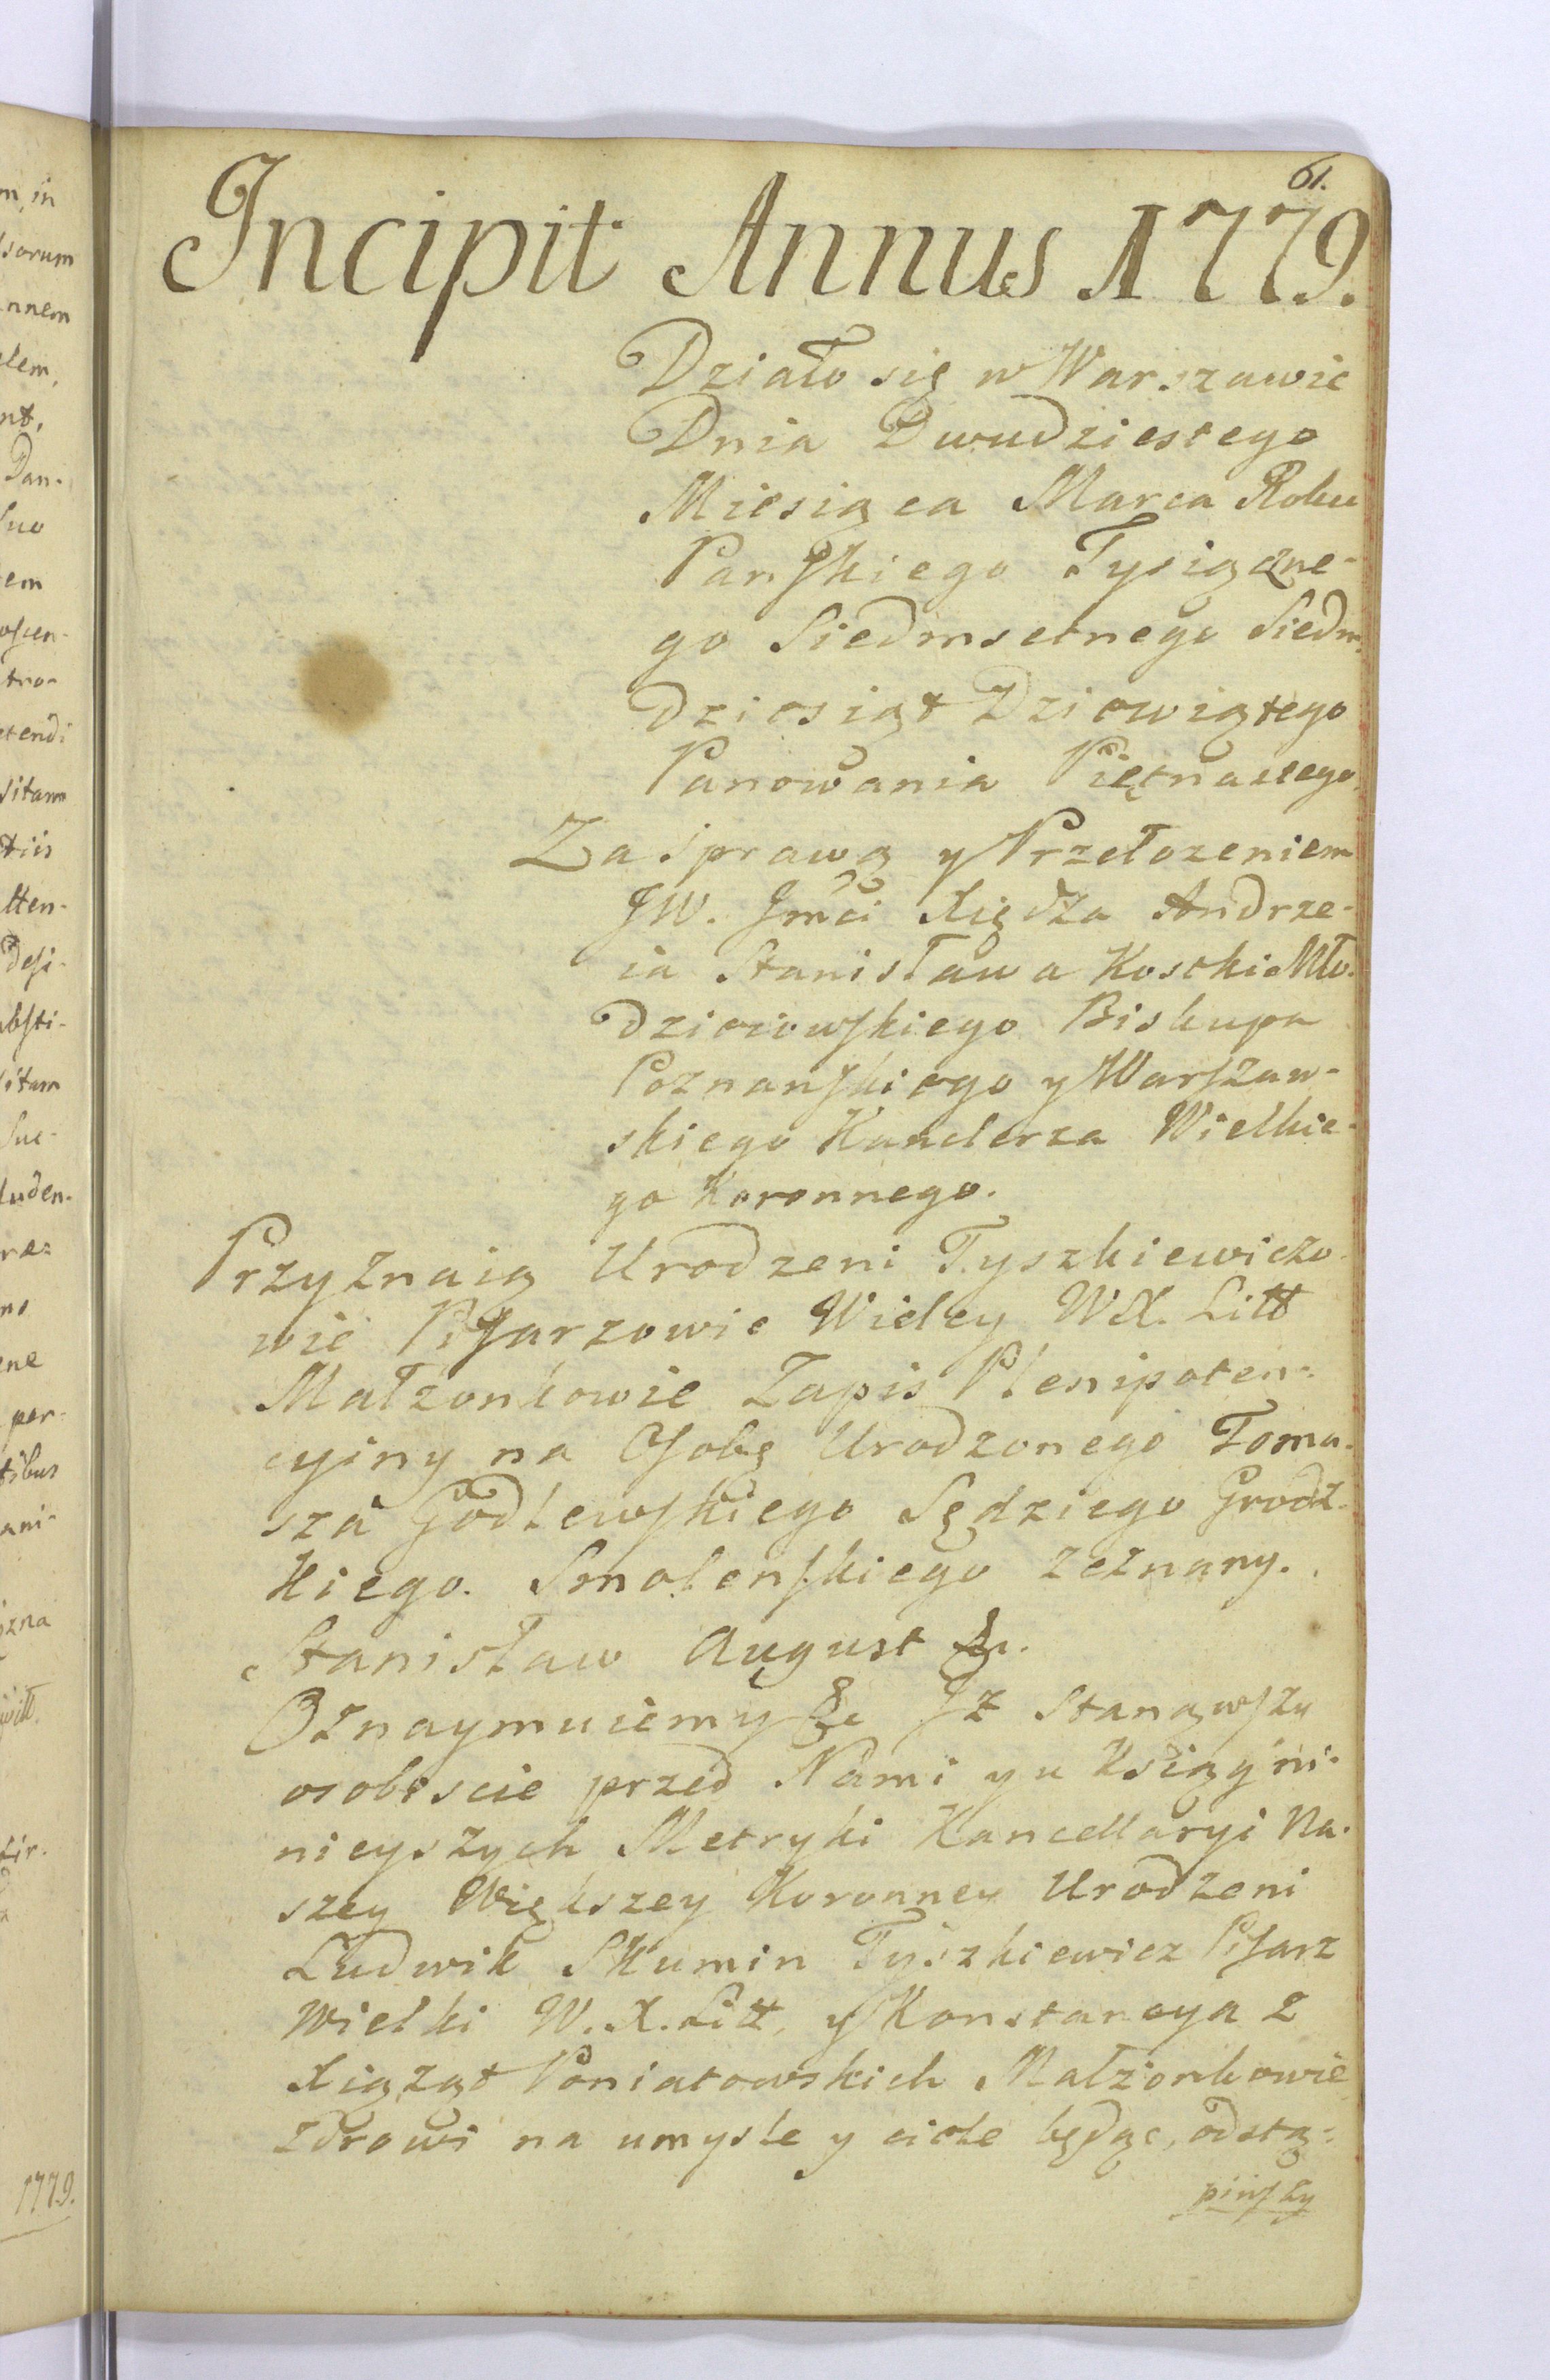 61.
Incipit Annus 1779.
Działo się w Warszawie
Dnia Dwudziestego
Miesiąca Marca Roku
Panſkiego Tysiączne-
go Siedmsetnego Siedm
dziesiąt Dziewiątego
Panowania Piętnastego
Za sprawą y Przełozeniem
JW. Jmći Xiędza Andrze-
ia Stanisława Kostki Mło-
dzieiowſkiego Biskupa
Poznanſkiego y Warſzaw-
skiego Kanclerza Wielkie-
go Koronnego.
Przyznaią Urodzeni Tyszkiewiczo-
wie Piſarzowie Wielcy W.X. Litt
Małzonkowie Zapis Plenipoten-
cyiny na Oſobę Urodzonego Toma-
sza Godlewſkiego Sędziego Grodz-
kiego Smolenſkiego zeznany.
Stanisław August &c.
Oznaymuiemy &c Jż Stanąwſzy
osobiscie przed Nami y u Ksiąg ni-
nieyszych Metryki Kancellaryi Na-
szey Większey Koronney Urodzeni
Ludwik Skumin Tyszkiewicz Piſarz
Wielki W.X. Litt. y Konstancya z
Xiążąt Poniatowskich Małzonkowie
zdrowi na umysle y ciele będąc, odstą-
piwſzy